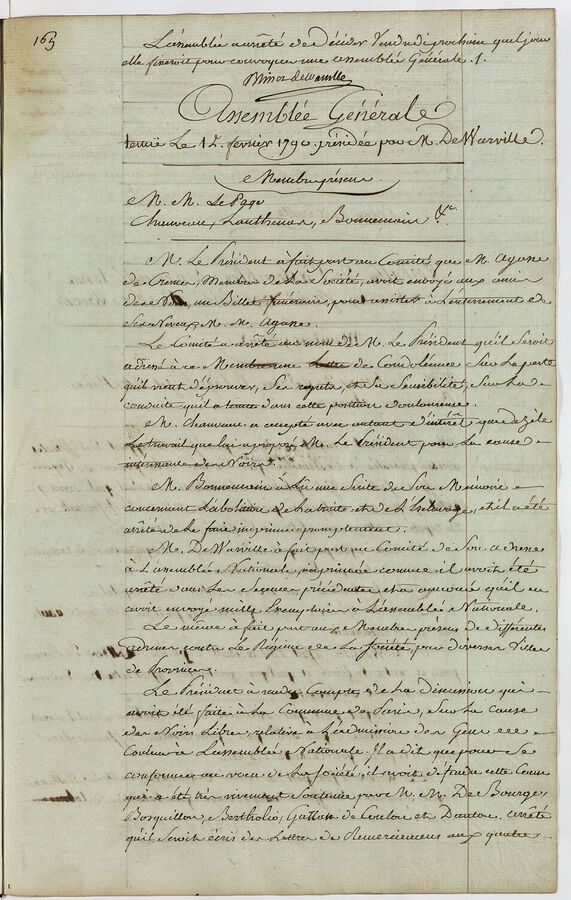 163
L'assemblée a arrêté de décider Vendredi prochain quel jour
elle fixeroit pour convoquer une assemblée Générale.
Assemblée Générale
tenuë Le 12. fevrier 1790. présidée par M. De Warville.
Membres présens
M. M. Le Page
Chauveau, Lanthenas, Bonnemain &c.
M. Le Président à fait part au Comité que M.
de Membre de La Société, avoit envoyé aux amis
des Noirs, un Billet funéraire, pour assister à L'enterrement de
Son Neveu, M.
Le Comité a arrêté au nom de M. Le Président qu'il Seroit
adressé à ce Membre une Lettre de Condoléance Sur La perte
qu'il vient d'éprouver, Ses regrets, et Sa Sensibilité, Sur La
conduite qu'il a tenue dans cette position douloureuse.
M. Chauveau a accepté avec autant d'intérêt que de zèle
Le travail que lui a proposé M. Le Président pour La cause
intéressante des Noirs.
M. Bonnemain à Lu une Suite de Son Mémoire
concernant L'abolition de La traite et de L'Esclavage, et il a été
arrêté de Le faire imprimer promptement.
M. De Warville à fait part au Comité de Son adresse
à L'assemblée Nationale, imprimée comme il avoit été
arrêté dans Les Séances précédentes et a annoncé qu'il en
avoit envoyé mille Exemplaires à L'assemblée Nationale.
Le même à fait part aux Membres présens de différentes
adresses contre Le Régime de La Société par diverses Villes
de Provinces.
Le Président à rendu Compte de La discussion qui
avoit été faite à La Commune de Paris, Sur La cause
des Noirs Libres, relative à L'admission des Gens de
Couleur à L'assemblée Nationale. Il a dit que pour Se
conformer au vœu de La Société, il avoit défendu cette Cause
qui a été très vivement Soutenue par M. M. De Bourge,
Bosquillon, Bertholio, Gattan de Coulon et Danton. arrêté
qu'il Seroit écrit des Lettres de Remerciemens aux quatre